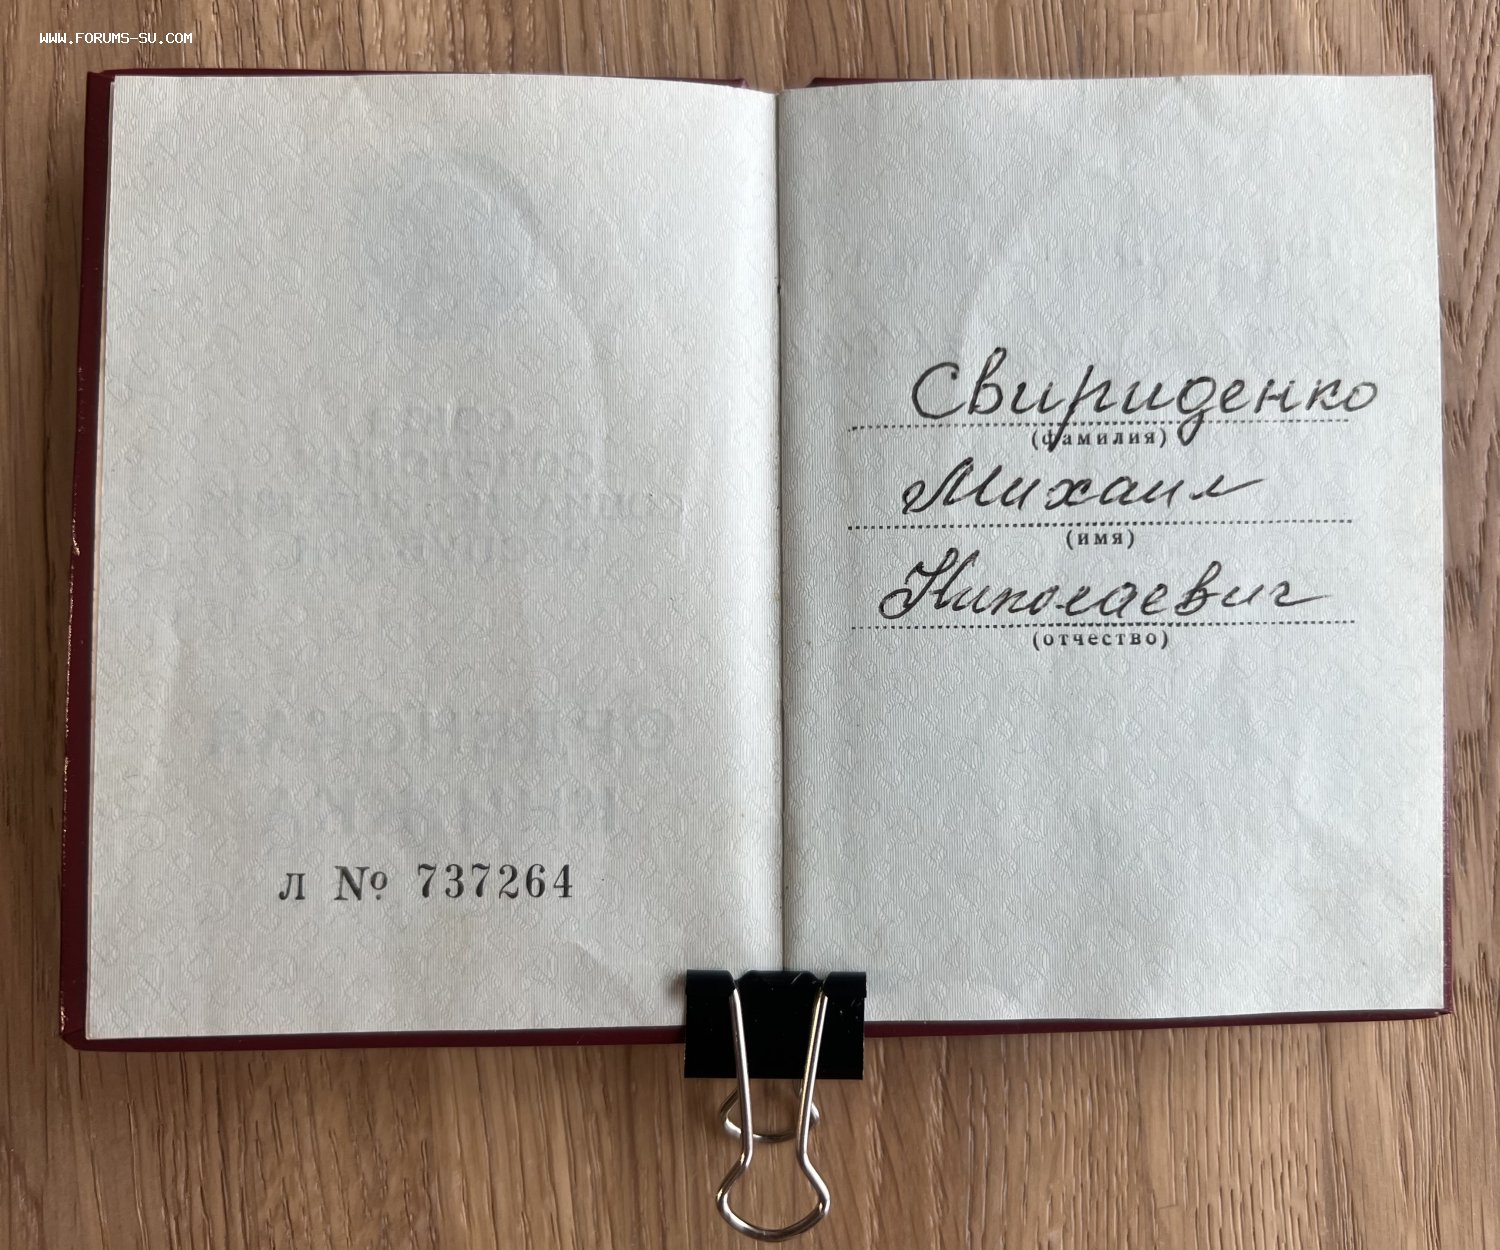 WWW.FORUMS-SU.COM
Л № 737264
Свириденко
(фамилия)
Михаил
(имя)
Николаевич
(отчество)